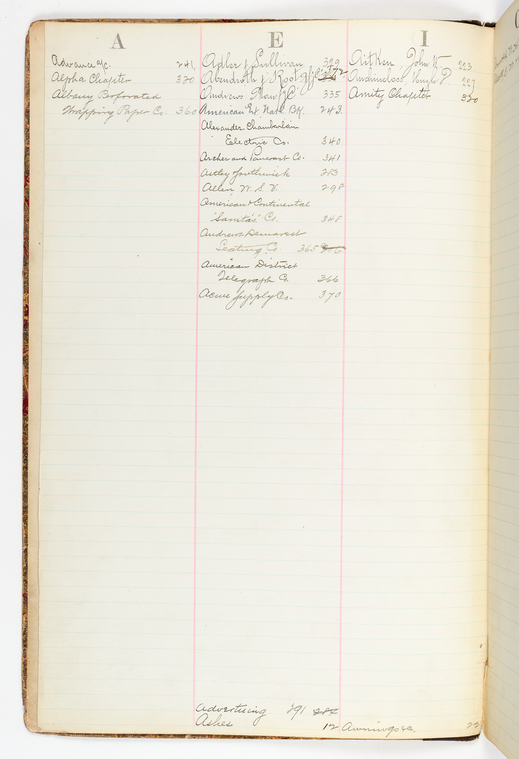 A
Advance a/c. 241
Alpha Chapter 320
Albany Perforated
Wrapping Paper Co. 360
E
Adler & Sullivan 329
Abendroth & Root Mfg Co 272
Andrews 335
American Ex. Natl. Bk. 243
Alexander Chamberlain
Electric Co. 340
Archer and Pancoast Co. 341
Astley Southwick 283
Allen W. S. V. 298
American & Continental
"Sanitas" Co. 348
Andrews Demarest
Seating Co. 365
American District
Telegraph Co. 366
Acme Supply Co. 370
Advertising 291
Ashes 12
I
Aitken John W 223
227
Amity Chapter 320
Awnings &c. 22